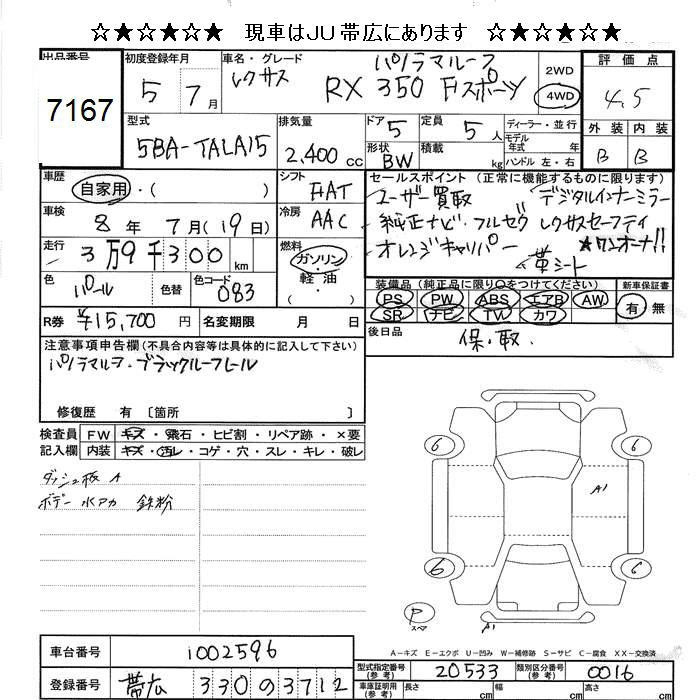 ☆★☆★☆★☆ 現車はJU帯広にあります ☆★☆★☆★☆
出品番号
7167
初度登録年月
5 7月
車名・グレード
レクサス RX 350 Fスポーツ
パノラマルーフ
2WD
4WD
評価点
4.5
外装 内装
B B
型式
5BA-TALA15
排気量
2,400 cc
ドア 5
形状 BW
定員 5人
積載 kg
ディーラー・並行
モデル年式 年式
ハンドル 左・右
車歴
自家用・( )
シフト
FIAT
車検
8年 7月(19日)
冷房
AAC
走行
3万9千300 km
燃料
ガソリン・軽油
色
パール
色替
色コード
083
R券 ¥15,700円
名変期限 月 日
セールスポイント(正常に機能するものに限ります)
ユーザー買取 デジタルインナーミラー
純正ナビ・フルセグ レクサスセーフティ
オレンジキャリパー ★ワンオーナー!!
革シート
装備品(純正品に限り○をつけてください)
PS PW ABS エアB AW
SR ナビ TV カワ
新車保証書
有 無
後日品
保・取.
注意事項申告欄(不具合内容等は具体的に記入して下さい)
パノラマルーフ・ブラックルーフレール
修復歴 有〔箇所 〕
検査員記入欄
FW キズ・飛石・ヒビ割・リペア跡・×要
内装 キズ・汚レ・コゲ・穴・スレ・キレ・破レ
ダッシュ板 A
ボデー 水アカ 鉄粉
6 6
A1
6 6
P
スペア
A1
A-キズ E-エクボ U-凹み W-補修跡 S-サビ C-腐食 XX-交換済
車台番号
1002596
登録番号
帯広 330 の 3712
型式指定番号(参考)
20533
類別区分番号(参考)
0016
車庫証明用(参考)
長さ cm
幅 cm
高さ cm